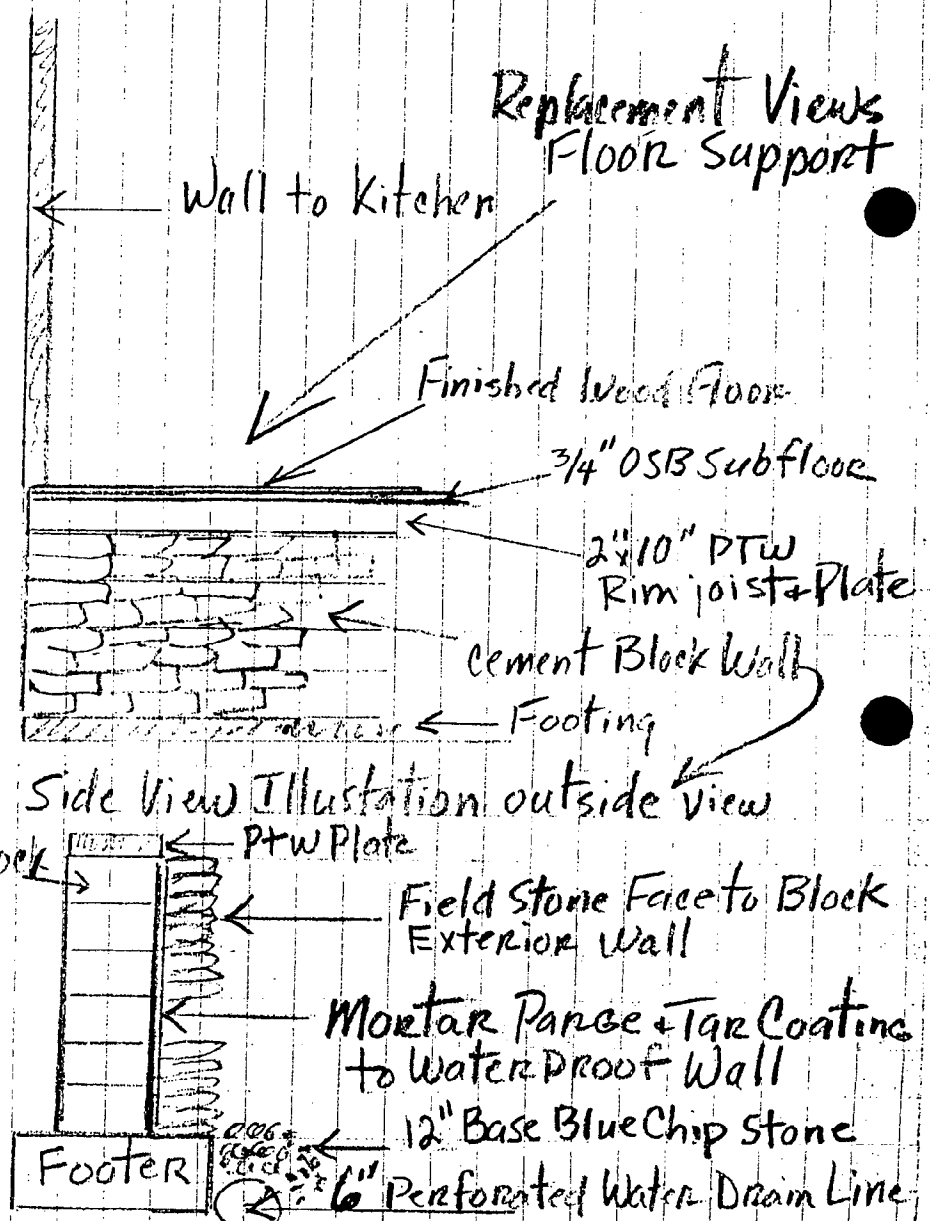 Replacement Views
Floor Support
Wall to Kitchen
Finished Wood Floor
3/4" OSB Subfloor
2"x10" PTW
Rim joist + Plate
Cement Block Wall
Footing
Side View Illustation outside view
PTW Plate
ock
Field Stone Face to Block
Exterior Wall
Mortar Parge + Tar Coating
to Water Proof Wall
12" Base Blue Chip Stone
Footer
6" Perforated Water Drain Line